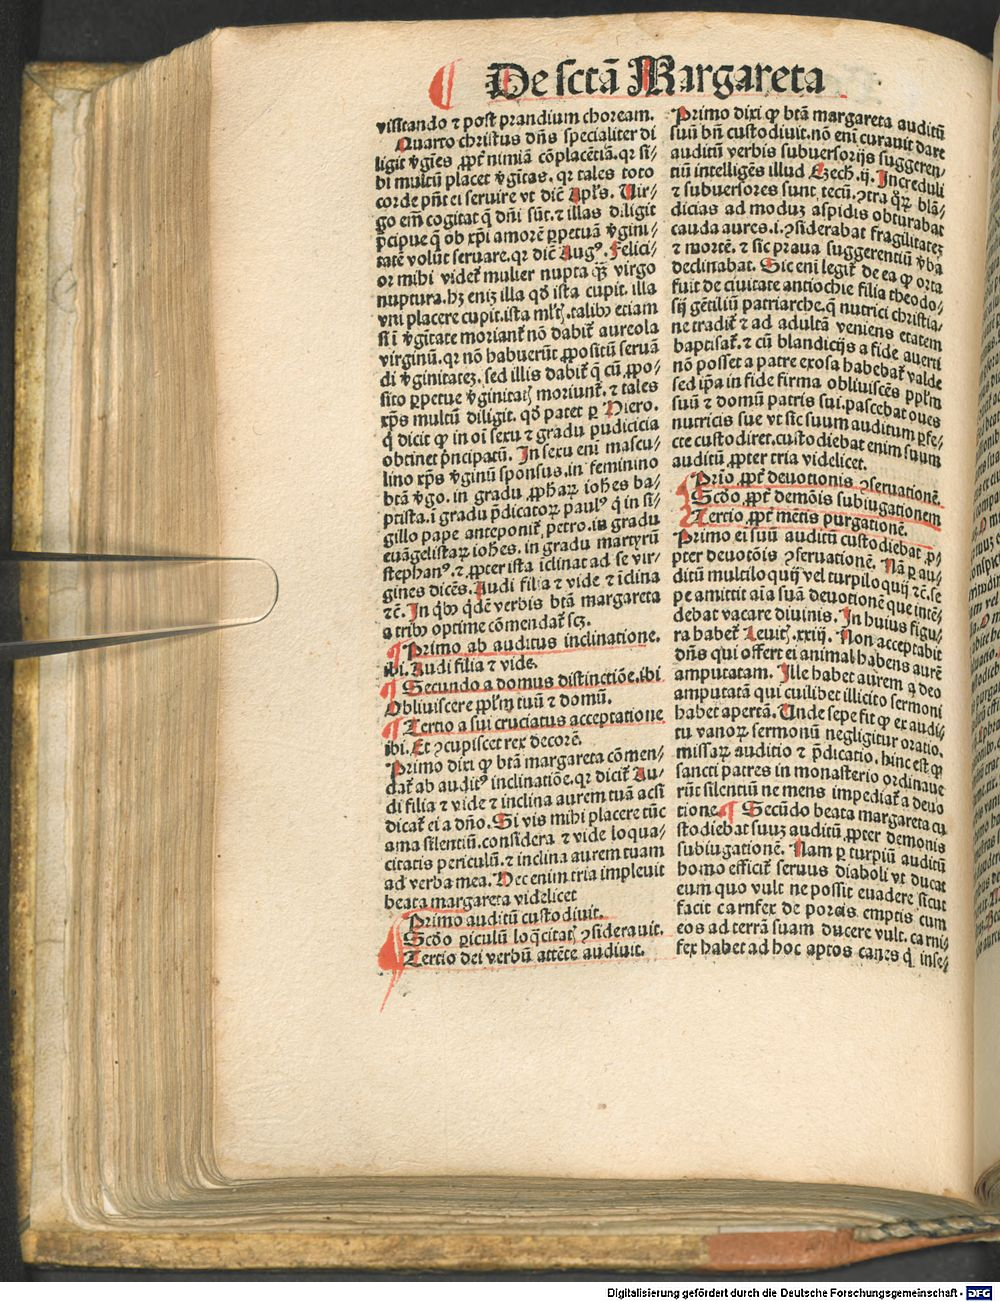 De sctā Margareta
visitando ⁊ post prandium choream.
Quarto christus dn̄s specialiter di
ligit v̄gīes ꝓpt̄ nimiā cōplacētiā. qꝛ si⸗
bi multū placet v̄gītas. qꝛ tales toto
corde pn̄t ei seruire vt dic̄ Apl's. Vir⸗
go em̄ cogitat q̄ dn̄i sūt. ⁊ illas diligit
p̄cipue q̄ ob xp̄i amorē ꝑpetuā v̄gini⸗
tatē volūt seruare. qꝛ dic̄ Augꝰ. Felici⸗
or mihi videt̄ mulier nupta qꝫ virgo
nuptura. hꝫ eniꝫ illa qd̄ ista cupit. illa
vni placere cupit. ista ml'tꝭ. talibꝰ etiam
si ī v̄gītate moriant̄ nō dabit̄ aureola
virginū. qꝛ nō habuerūt ꝓpositū seruā
di v̄ginitateꝫ. sed illis dabit̄ q̄ cū ꝓpo⸗
sito ꝑpetue v̄ginitatꝭ moriunt̄. ⁊ tales
xp̄s multū diligit. qd̄ patet ꝑ Hiero.
q̄ dicit ꝙ in oī sexu ⁊ gradu pudicicia
obtinet p̄ncipatū. In sexu enī mascu⸗
lino xp̄s v̄ginū sponsus. in feminino
btā v̄go. in gradu ꝓphaꝝ iohes ba⸗
ptista. ī gradu p̄dicatoꝝ paulꝰ q̄ in si⸗
gillo pape anteponit̄ petro. in gradu
euāgelistaꝝ iohes. in gradu martyrū
stephanꝰ. ⁊ ꝓpter ista īclinat ad se vir⸗
gines dicēs. Audi filia ⁊ vide ⁊ īclina
⁊c̄. In qͥbꝰ qͥdē verbis btā margareta
a tribꝰ optime cōmendat̄ scꝫ.
Primo ab auditus inclinatione.
ibi. Audi filia ⁊ vide.
Secundo a domus distinctiōe. ibi
Obliuiscere ppl'm tuū ⁊ domū.
Tertio a sui cruciatus acceptatione
ibi. Et ꝯcupiscet rex decorē.
Primo dixi ꝙ btā margareta cōmen⸗
dat̄ ab auditꝰ inclinatiōe. qꝛ dicit̄ Au⸗
di filia ⁊ vide ⁊ inclina aurem tuā acsi
dicat̄ ei a dn̄o. Si vis mihi placere tūc
ama silentiū. considera ⁊ vide loqua⸗
citatis periculū. ⁊ inclina aurem tuam
ad verba mea. Hec enim tria impleuit
beata margareta videlicet
Primo auditū custodiuit.
Scd̄o ꝑiculū loqͣcitatꝭ ꝯsiderauit.
Tertio dei verbū attēte audiuit.
Primo dixi ꝙ btā margareta auditū
suū bn̄ custodiuit. nō enī curauit dare
auditū verbis subuersorijs suggeren⸗
tiū intelligēs illud Ezech. ij. Increduli
⁊ subuersores sunt tecū. ꝯtra qͦꝝ blā⸗
dicias ad moduꝫ aspidis obturabat
cauda aures. i. ꝯsiderabat fragilitateꝫ
⁊ mortē. ⁊ sic praua suggerentiū v̄ba
declinabat. Sic enī legit̄ de ea ꝙ orta
fuit de ciuitate antiochie filia theodo⸗
sij gētiliū patriarche. q̄ nutrici christia⸗
ne tradit̄ ⁊ ad adultā veniens etatem
baptisat̄. ⁊ cū blandicijs a fide auerti
nō posset a patre exosa habebat̄ valde
sed ip̄a in fide firma obliuiscēs ppl'm
suū ⁊ domū patris sui. pascebat oues
nutricis sue vt sic suum auditum ꝑfe⸗
cte custodiret. custodiebat enim suum
auditū ꝓpter tria videlicet.
Prīo ꝓpt̄ deuotionis ꝯseruationē.
Scd̄o ꝓpt̄ demōis subiugationem
Tertio ꝓpt̄ mētis purgationē.
Primo ei suū auditū custodiebat ꝓ⸗
pter deuotōis ꝯseruationē. Nā ꝑ au⸗
ditū multiloquij vel turpiloquij ⁊c̄. se
pe amittit aīa suā deuotionē que intē⸗
debat vacare diuinis. In huius figu⸗
ra habet̄ Leuitꝭ. xxiij. Non acceptabit
dn̄s qui offert ei animal habens aurē
amputatam. Ille habet aurem a deo
amputatā qui cuilibet illicito sermoni
habet apertā. Unde sepe fit ꝙ ex audi⸗
tu vanoꝝ sermonū negligitur oratio.
missaꝝ auditio ⁊ p̄dicatio. hinc est ꝙ
sancti patres in monasterio ordinaue
rūt silentiū ne mens impediat̄ a deuo
tione. Secūdo beata margareta cu
stodiebat suuꝫ auditū. ꝓpter demonis
subiugationē. Nam ꝑ turpiū auditū
homo efficit̄ seruus diaboli vt ducat
eum quo vult ne possit euadere sicut
facit carnfex de porcis emptis cum
eos ad terrā suam ducere vult. carni⸗
fex habet ad hoc aptos canes q̄ inse⸗
Digitalisierung gefördert durch die Deutsche Forschungsgemeinschaft - DFG